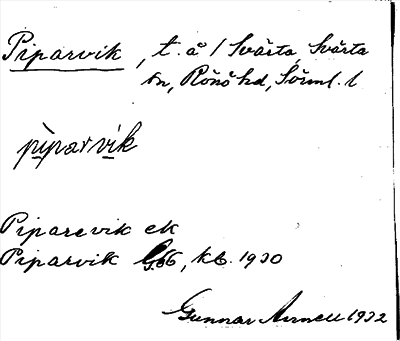 Piparvik, t. å 1 Svärta, Svärta
sn, Rönö hd, Sörml. l
pìparvik
Piparevik ek
Piparvik G66, kb. 1930
Gunnar Arnell 1932